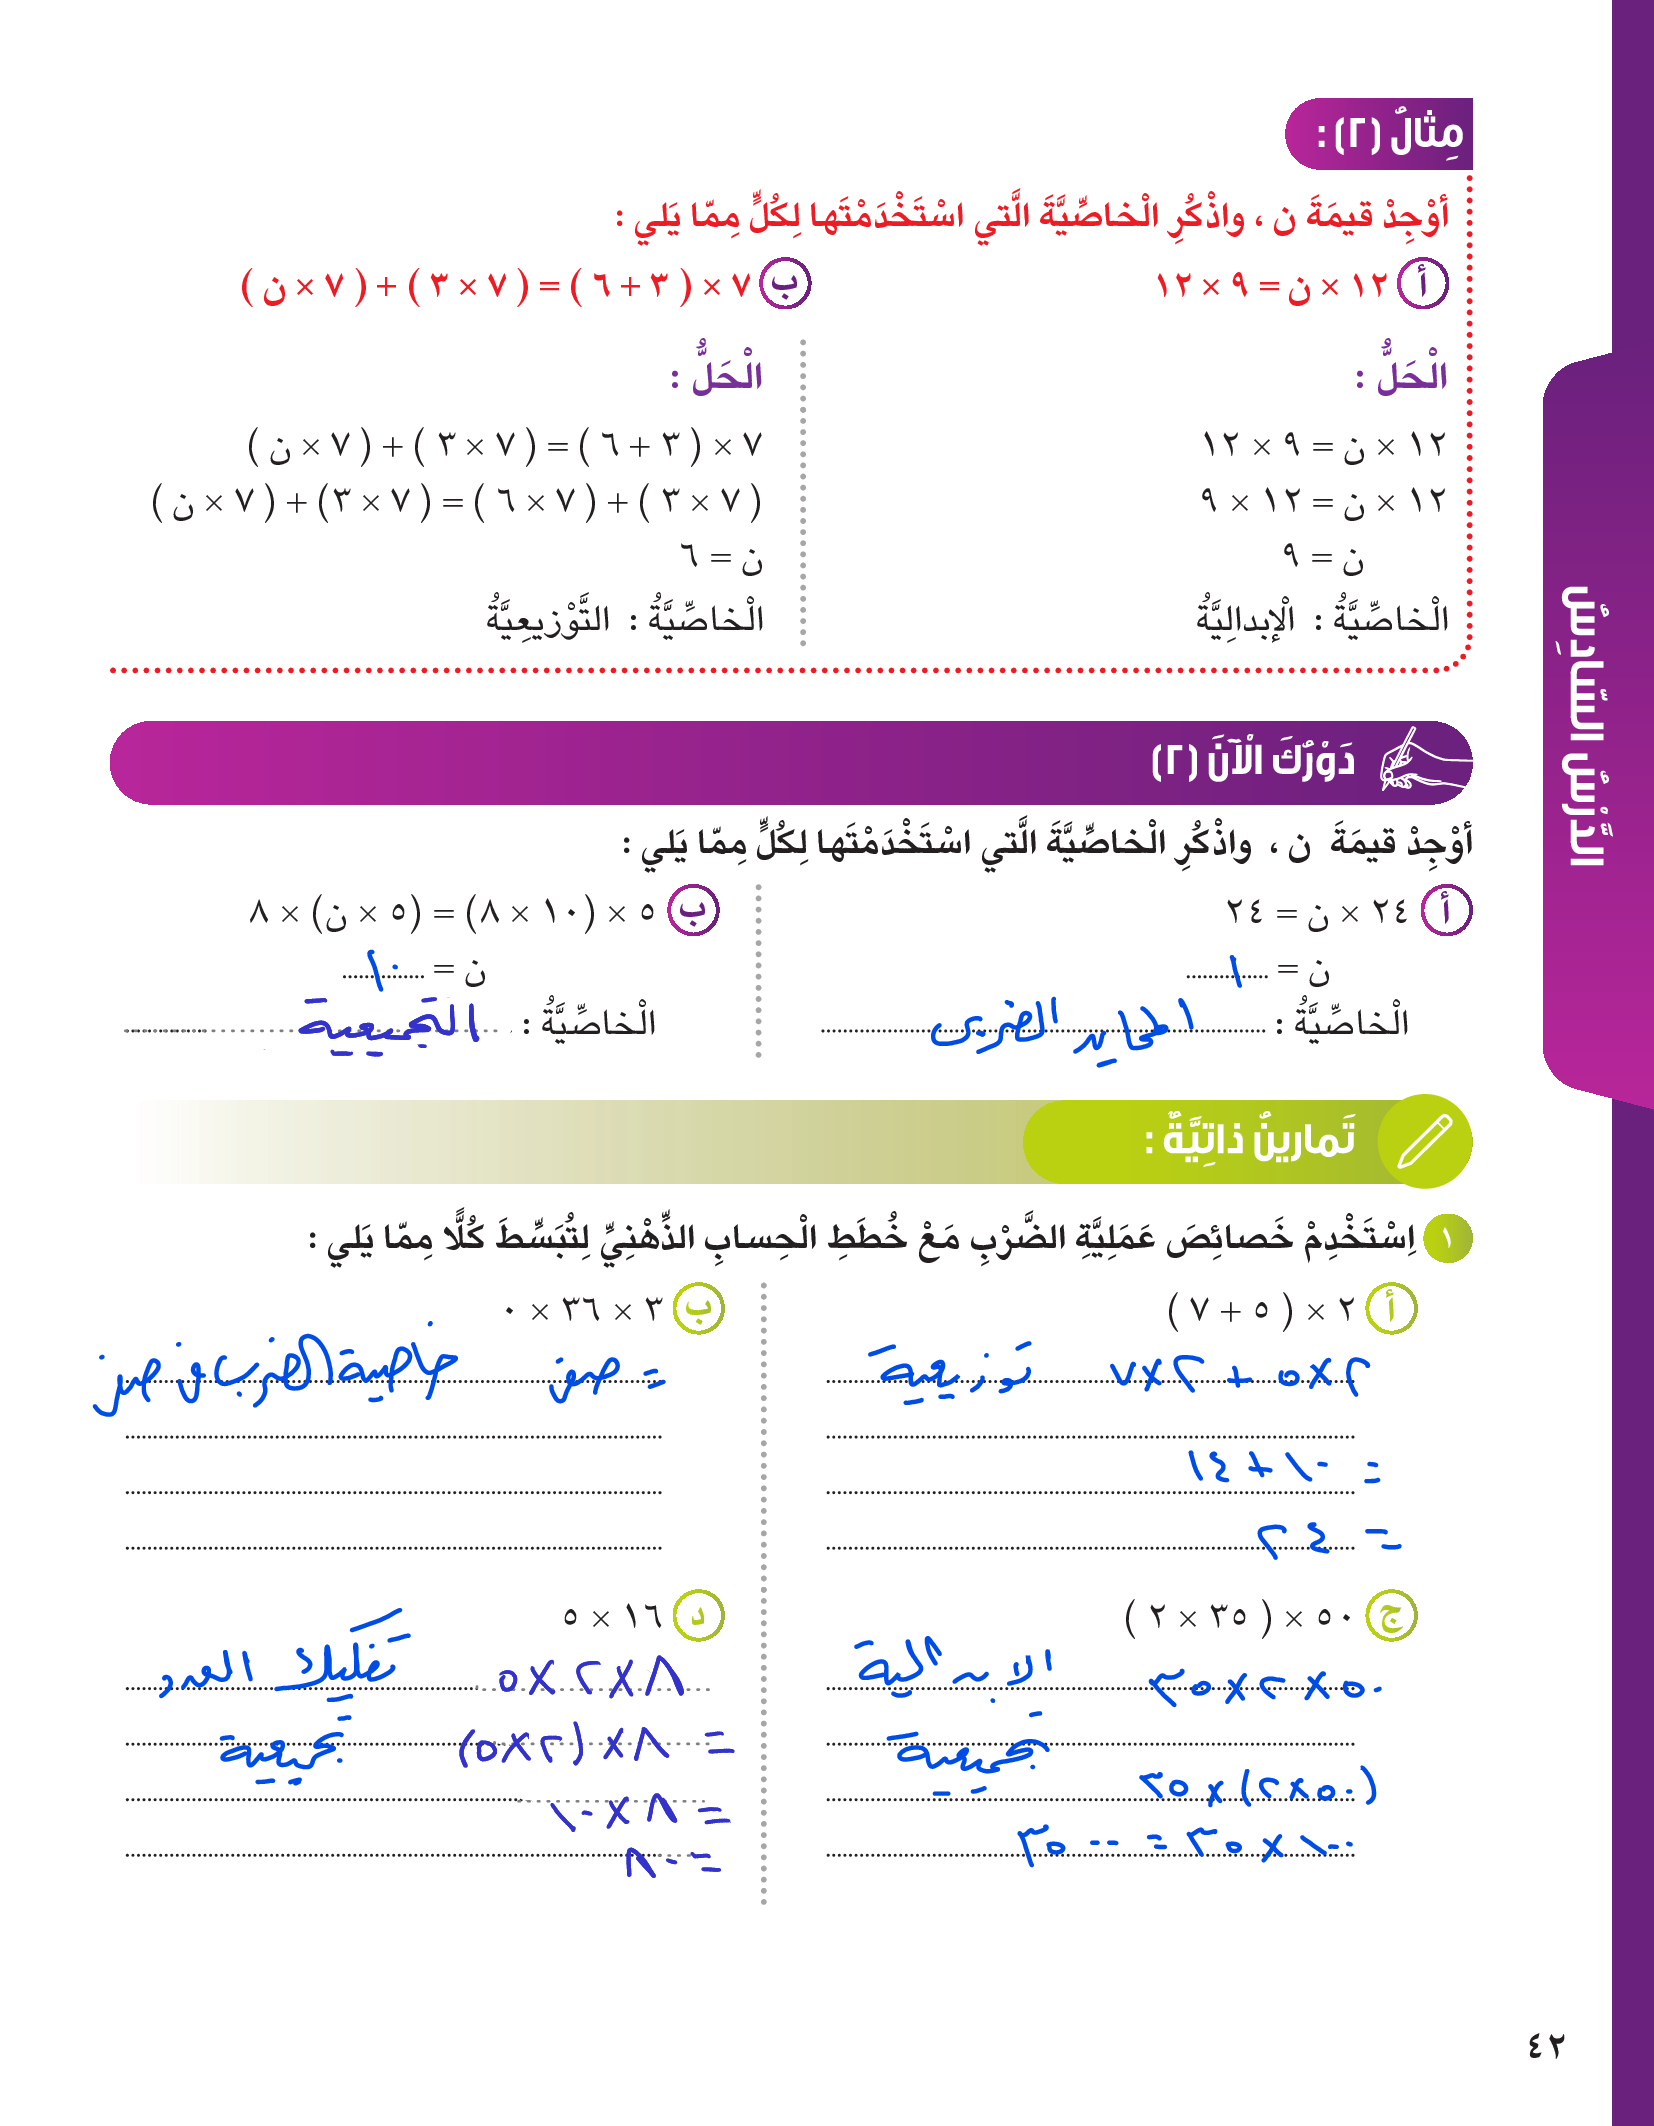 مِثالٌ (٢) :
أَوْجِدْ قيمَةَ ن ، واذْكُرِ الْخاصِّيَّةَ الَّتي اسْتَخْدَمْتَها لِكُلٍّ مِمّا يَلي :
أ ١٢ × ن = ٩ × ١٢
ب ٧ × ( ٣ + ٦ ) = ( ٧ × ٣ ) + ( ٧ × ن )
الْحَلُّ :
١٢ × ن = ٩ × ١٢
١٢ × ن = ١٢ × ٩
ن = ٩
الْخاصِّيَّةُ : الْإبدالِيَّةُ
الْحَلُّ :
٧ × ( ٣ + ٦ ) = ( ٧ × ٣ ) + ( ٧ × ن )
( ٧ × ٣ ) + ( ٧ × ٦ ) = ( ٧ × ٣ ) + ( ٧ × ن )
ن = ٦
الْخاصِّيَّةُ : التَّوْزيعِيَّةُ
دَوْرُكَ الْآنَ (٢)
أَوْجِدْ قيمَةَ ن ، واذْكُرِ الْخاصِّيَّةَ الَّتي اسْتَخْدَمْتَها لِكُلٍّ مِمّا يَلي :
أ ٢٤ × ن = ٢٤
ن = ١
الْخاصِّيَّةُ : المحايد الضربى
ب ٥ × (١٠ × ٨) = (٥ × ن) × ٨
ن = ١٠
الْخاصِّيَّةُ : التجميعية
تَمارينُ ذاتِيَّةٌ :
١ اِسْتَخْدِمْ خَصائِصَ عَمَلِيَّةِ الضَّرْبِ مَعْ خُطَطِ الْحِسابِ الذِّهْنِيِّ لِتُبَسِّطَ كُلًّا مِمّا يَلي :
أ ٢ × ( ٥ + ٧ )
٢×٥ + ٢×٧ توزيعية
= ١٠ + ١٤
= ٢٤
ب ٣ × ٣٦ × ٠
= صفر خاصية الضرب في صفر
ج ٥٠ × ( ٣٥ × ٢ )
٥٠ × ٢ × ٣٥ الابدالية
تجميعية
(٥٠ × ٢) × ٣٥
١٠٠ × ٣٥ = ٣٥٠٠
د ١٦ × ٥
٨ × ٢ × ٥ تفكيك العدد
= ٨ × (٢ × ٥) تجميعية
= ٨ × ١٠
= ٨٠
الدَّرْسُ السّادِسُ
٤٢